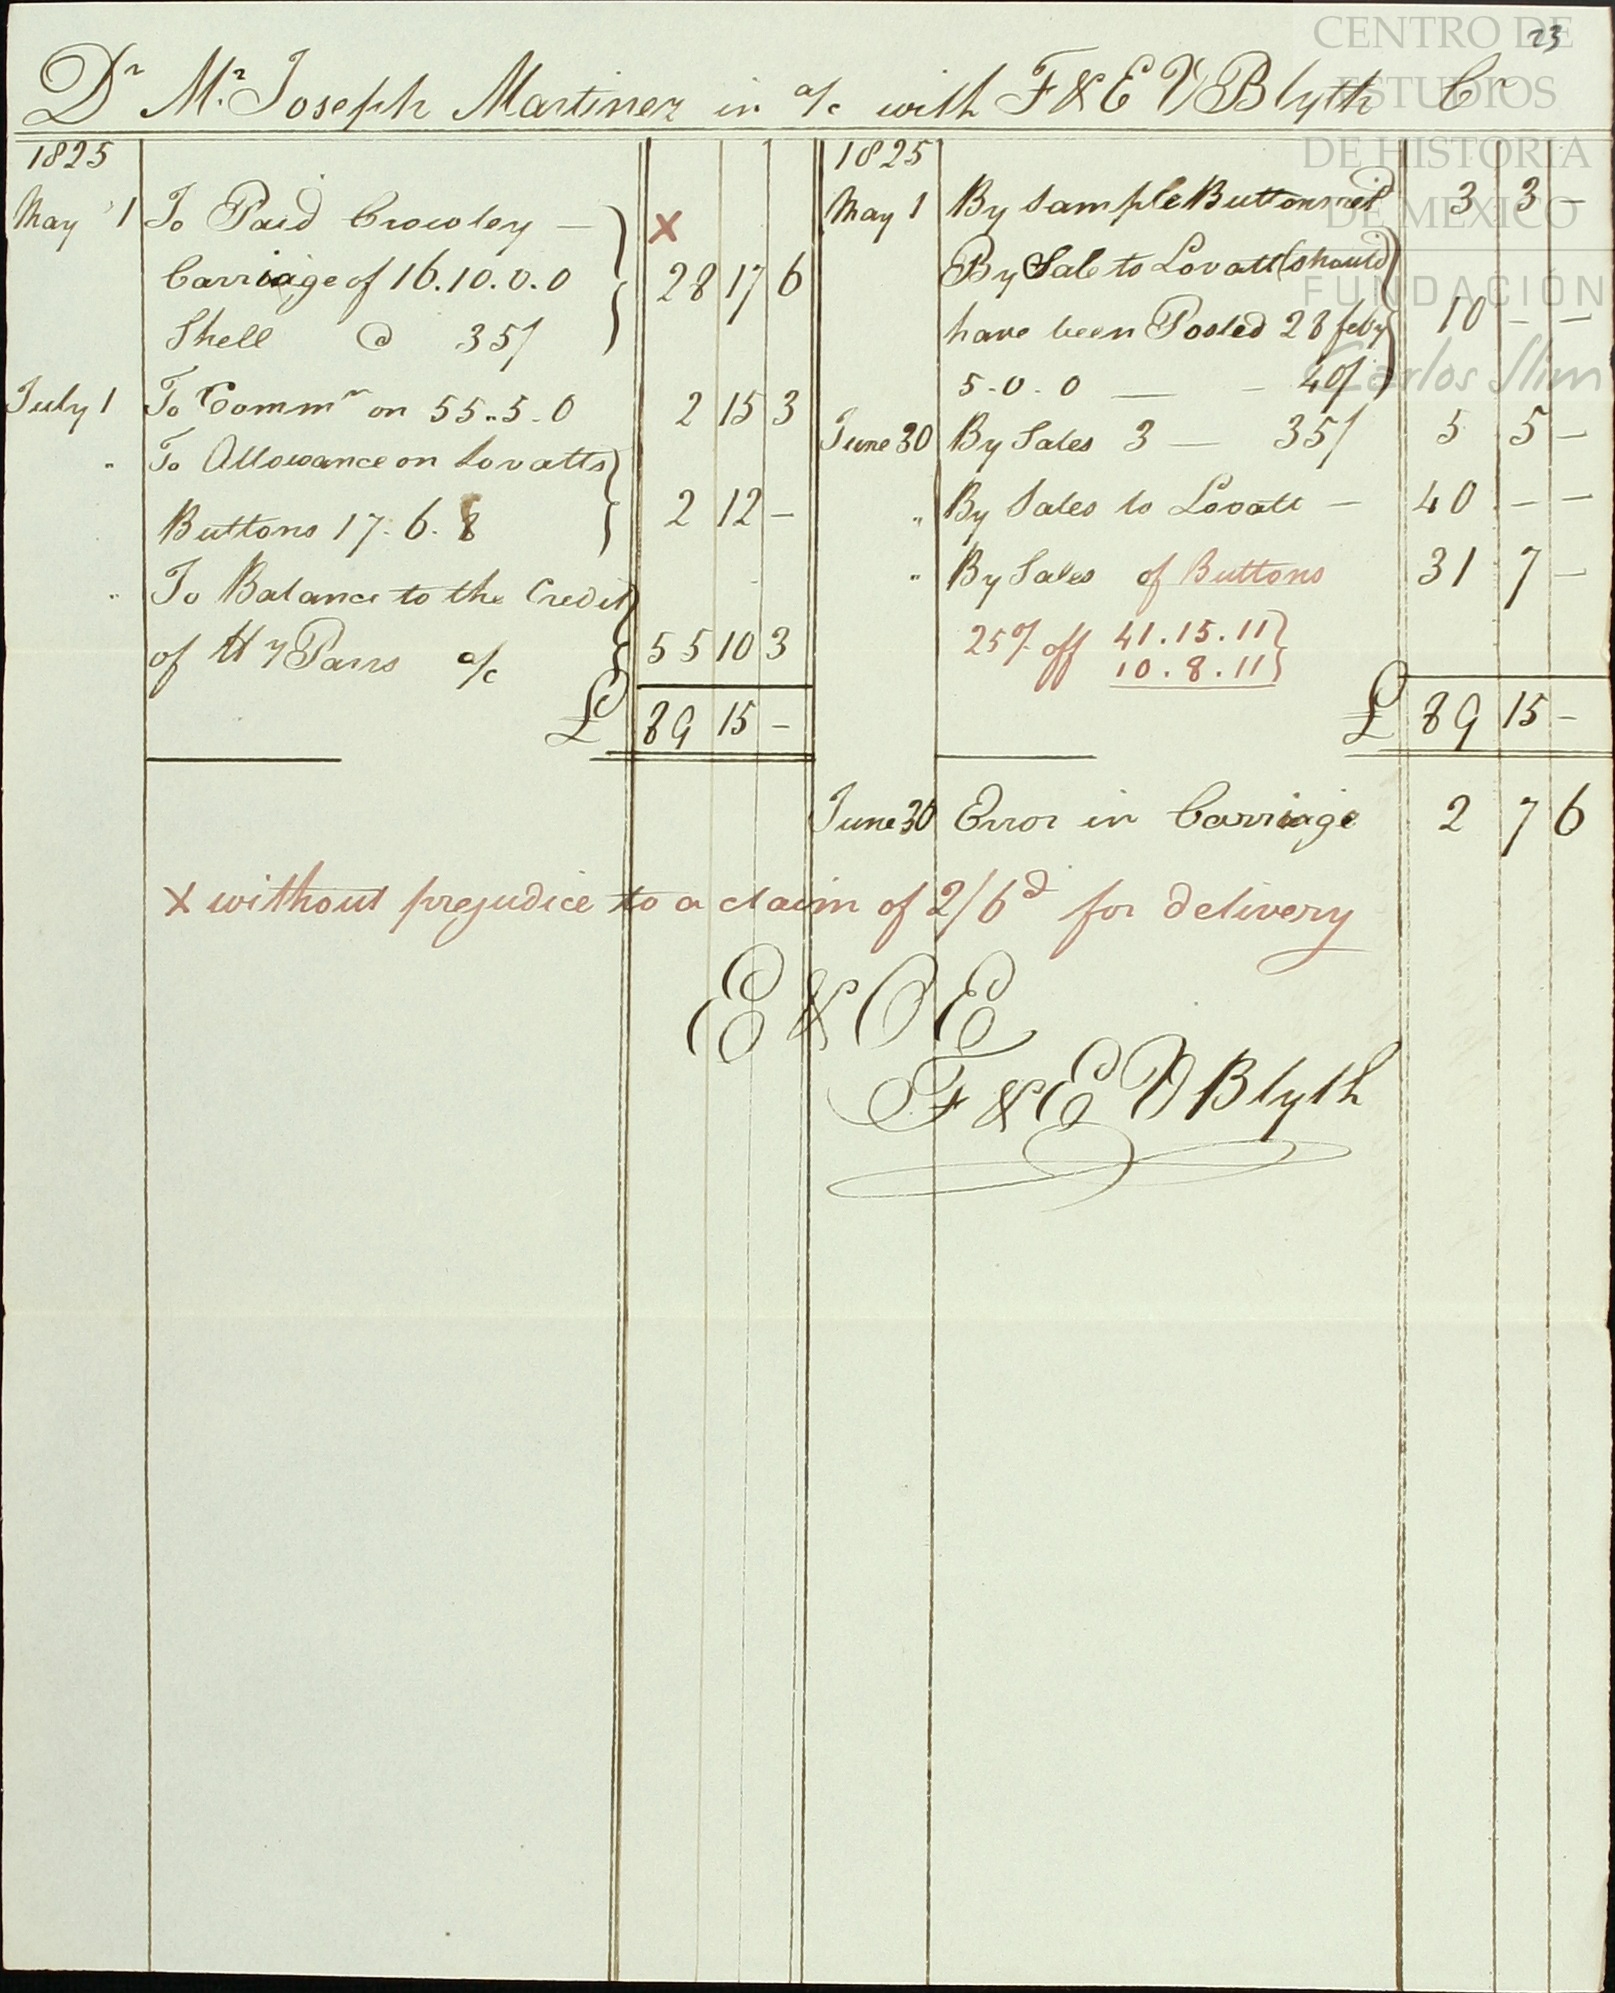 23
Dr Mr. Joseph Martinez in a/c with F & E V Blyth Cr
1825
May 1 To Paid Crowley —
Carriage of 16.10.0.0 28 17 6
Shell @ 35/
X
July 1 To Commn on 55..5.0 2 15 3
" To Allowance on Lovatts
Buttons 17.6.8 2 12 —
" To Balance to the Credit
of a/c 55 10 3
£ 89 15 —
1825
May 1 By Sample Buttons 3 3 —
By Sale to Lovatt (should
have been Posted 28 feby 10 — —
5.0.0 — — 40/)
June 30 By Sales 3 — 35/ 5 5 —
" By Sales to Lovatt — 40 — —
" By Sales of Buttons 31 7 —
25% off 41.15.11
10.8.11
£ 89 15 —
June 30 Error in Carriage 2 7 6
X without prejudice to a claim of 2/6d for delivery
E & O E
F & E V Blyth
CENTRO DE
ESTUDIOS
DE HISTORIA
DE MEXICO
FUNDACIÓN
Carlos Slim